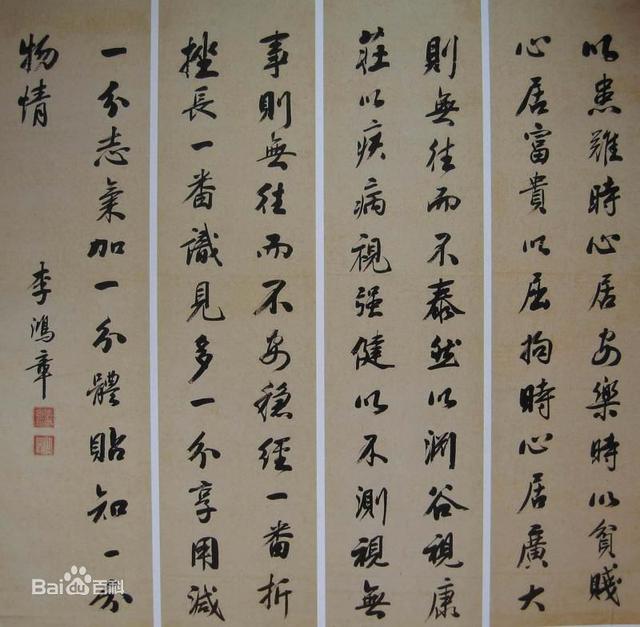 以患難時心居安樂時以貧賤
心居富貴以屈拘時心居廣大
則無往而不泰然以淵谷視康
莊以疾病視强健以不測視無
事則無往而不安穩經一番折
挫長一番識見多一分享用減
一分志氣加一分體貼知一分
物情
李鴻章
Bai du 百科